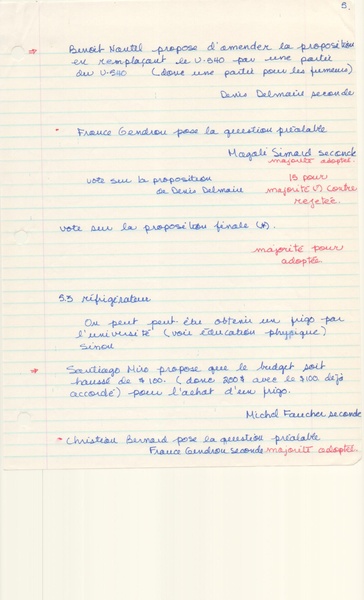 5.
* Benoit Nautel propose d'amender la proposition
en remplaçant le U-540 par une partie
du U-540 (donc une partie pour les fumeurs)
Denis Delmaire seconde
* France Gendron pose la question préalable
Magali Simard seconde
majorité adoptée.
vote sur la proposition
de Denis Delmaire
13 pour
majorité contre
rejetée.
vote sur la proposition finale (*).
majorité pour
adoptée
5.3 réfrigérateur
On peut peut-être obtenir un frigo par
l'université (voir Éducation physique)
sinon
* Santiago Miro propose que le budget soit
haussé de $100. (donc 200$ avec le $100 déjà
accordé) pour l'achat d'un frigo.
Michel Faucher seconde
* Christian Bernard pose la question préalable
France Gendron seconde majorité adoptée.